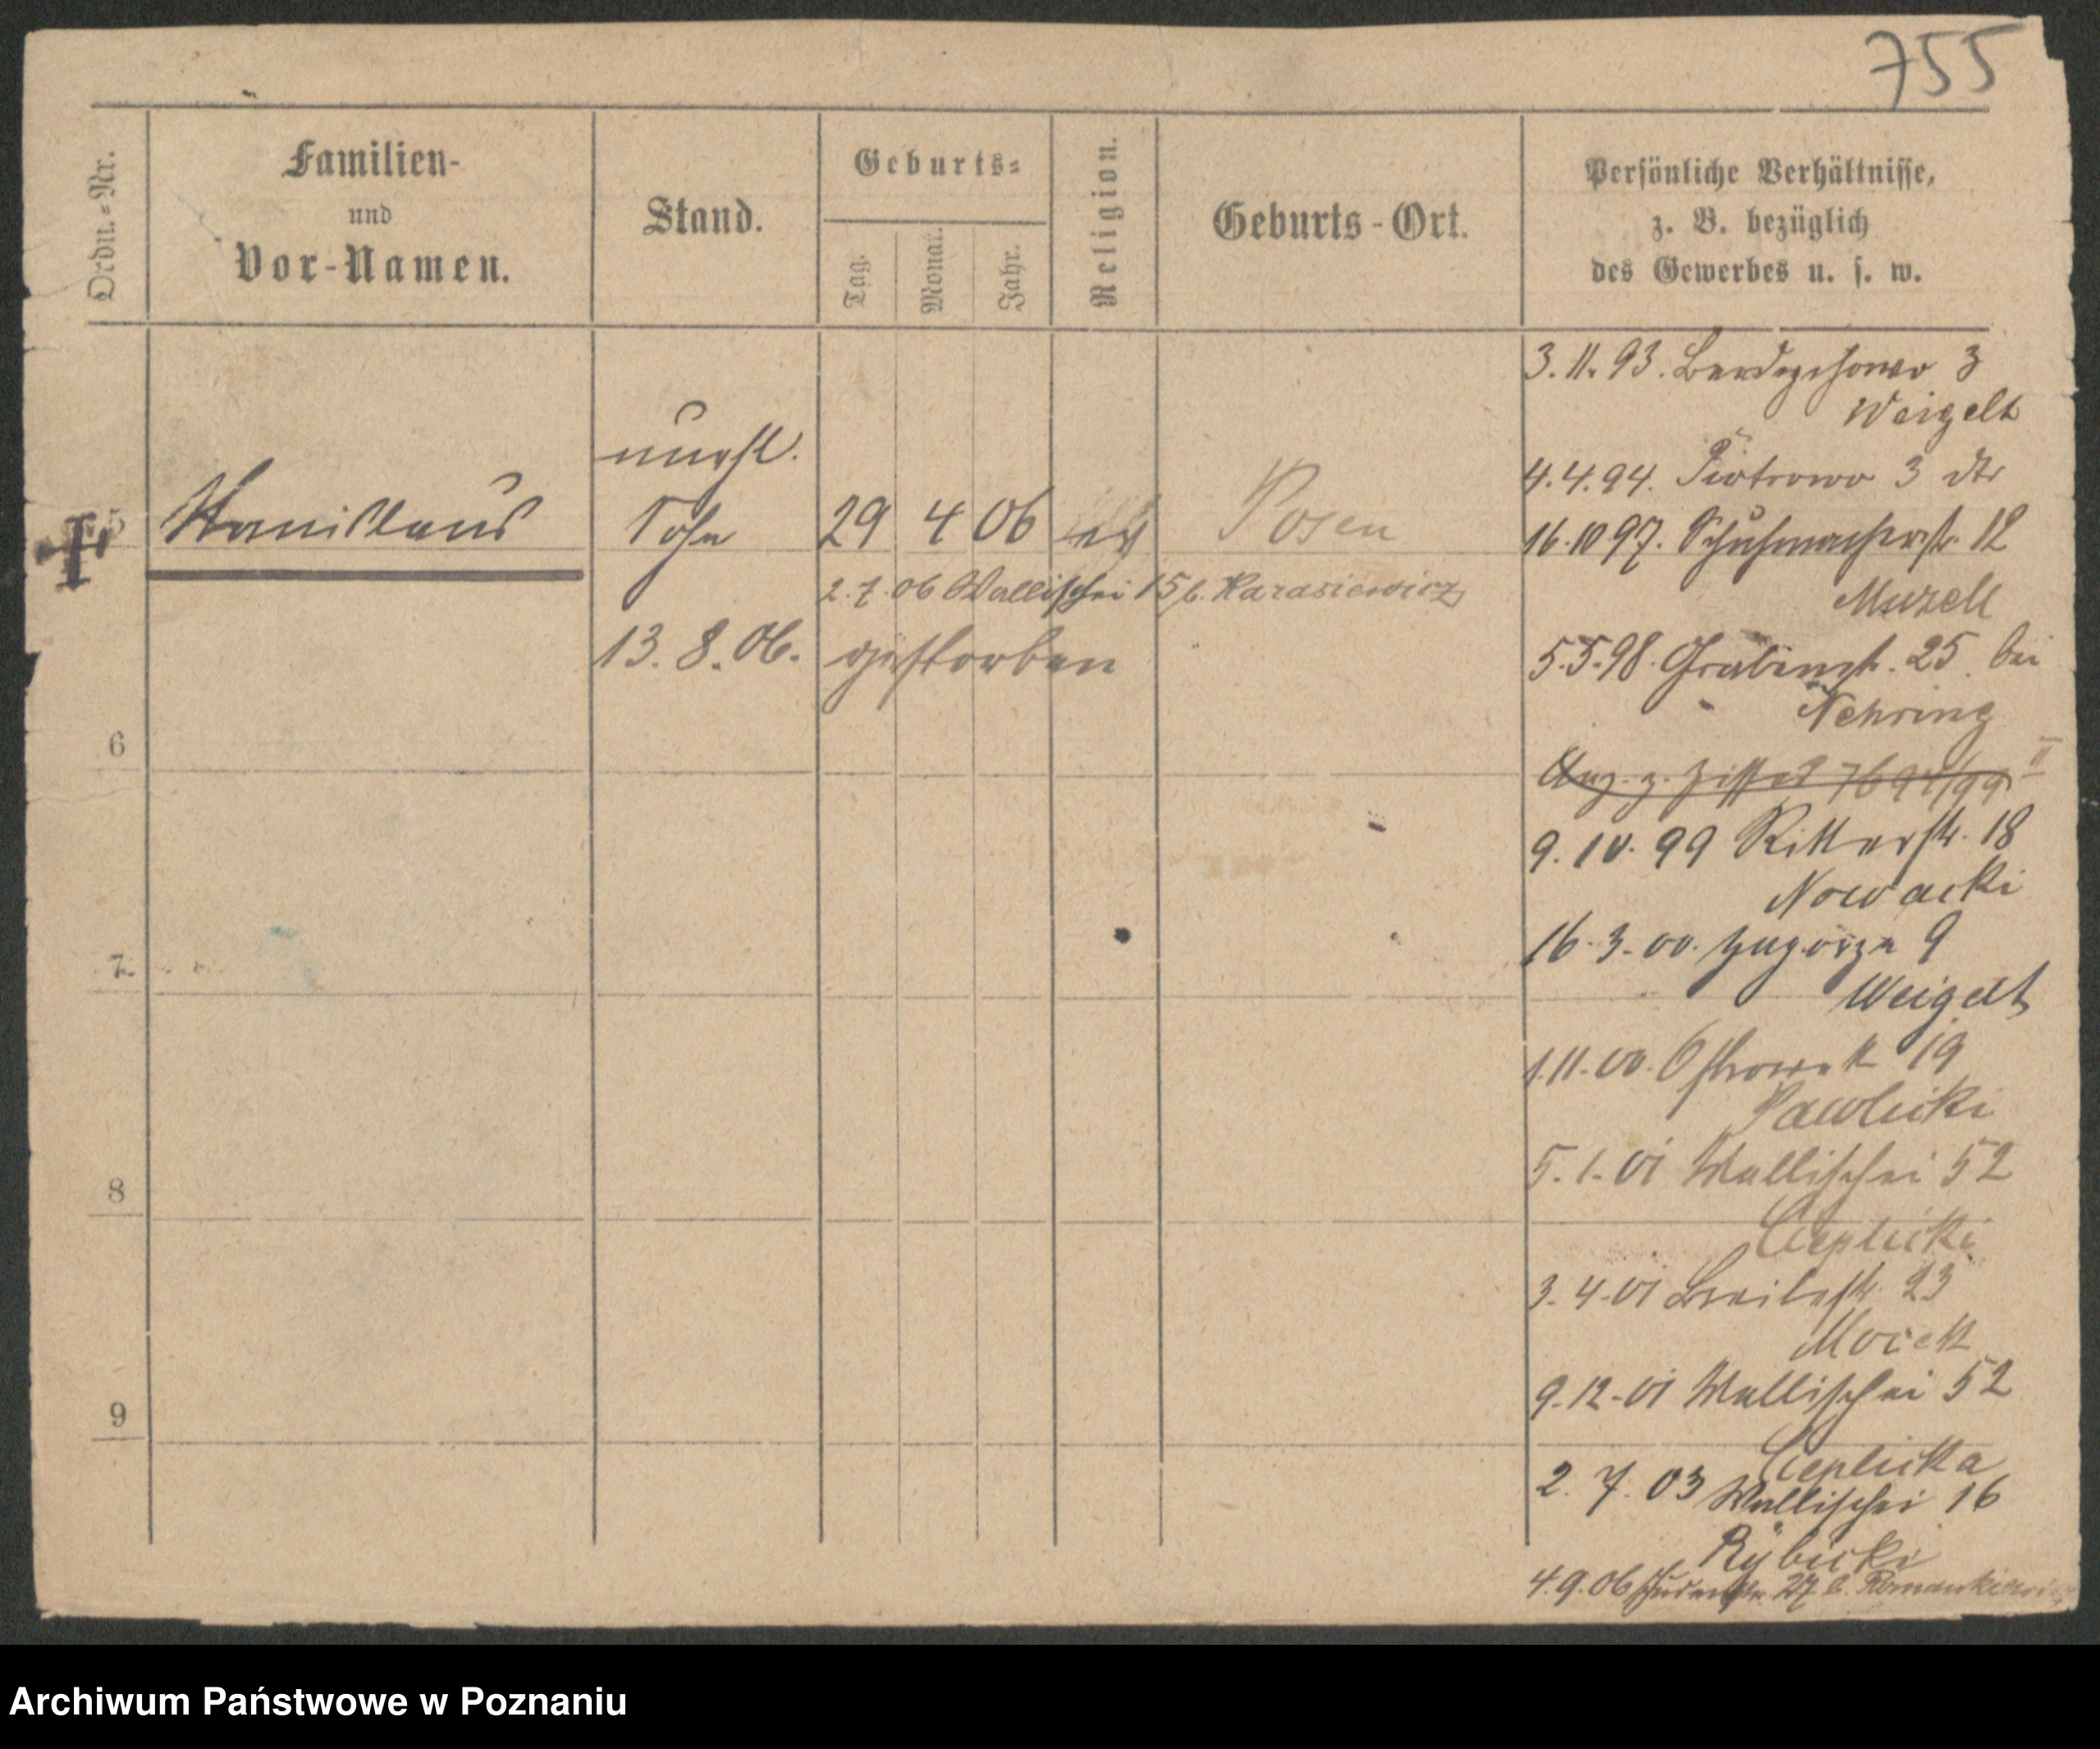 755
Ordn.-Nr.
Familien-
und
Vor-Namen.
Stand.
Geburts-
Tag.
Monat.
Jahr.
Religion.
Geburts-Ort.
Persönliche Verhältnisse,
z. B. bezüglich
des Gewerbes u. s. w.
5
Stanislaus
unehl.
Sohn
29 4 06
Posen
2. 7. 06 Wallischei 15 b. Karasiewicz
13. 8. 06. gestorben
6
7
8
9
3. 11. 93. Berdychowo 3
Weigelt
4. 4. 94. Piotrowo 3 dto
16. 10 97. Schuhmacherstr. 12
Muzell
5. 5. 98. Grabenstr. 25. bei
Nehring
7694/99 II
9. 10. 99 Ritterstr. 18
Nowacki
16. 3. 00. Zagorze 9
Weigelt
1. 11. 00. Ostrowek 19
Pawlicki
5. 1. 01 Wallischei 52
Cieplicki
3. 4. 01 Breitestr. 23
9. 12. 01 Wallischei 52
Cieplicka
2. 7. 03 Wallischei 16
Rybicki
4. 9. 06 Judenstr. 27 b. Romankiewicz
Archiwum Państwowe w Poznaniu